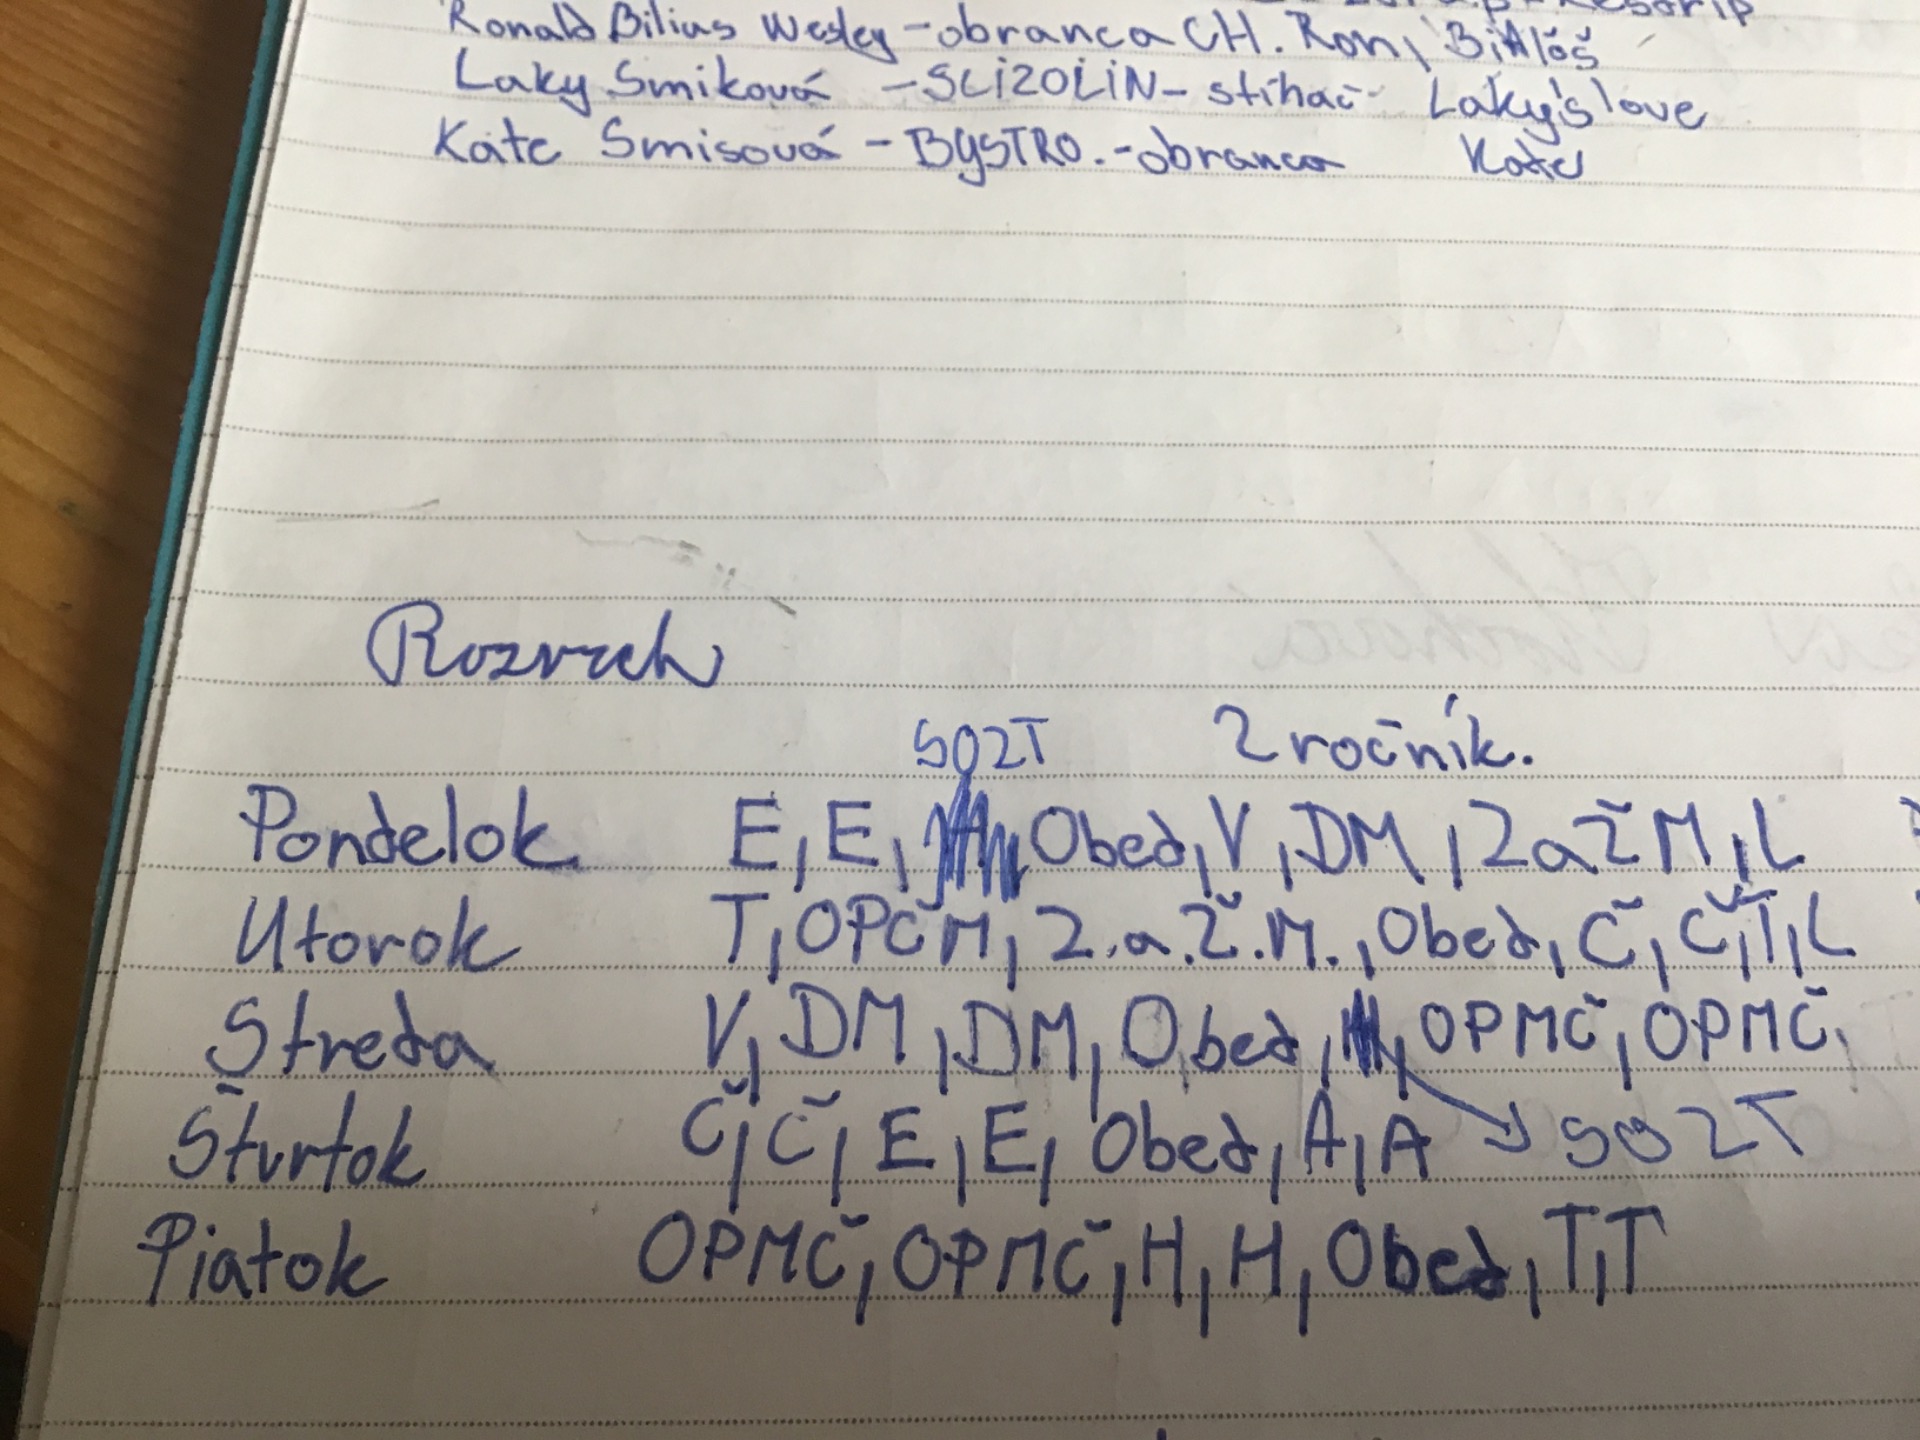 Ronald Bilius Wesley - obranca CH. Ron,
Laky Smiková - SLIZOLIN - stíhač - Laky's love
Kate Smisová - BYSTRO. - obranca Kate
Rozvrh
SOZT 2 ročník.
Pondelok E, E, Obed, V, DM, ZaŽM, L
Utorok T, OPČM, Z.a.Ž.M., Obed, Č, Č, T, L
Streda V, DM, DM, Obed, OPMČ, OPMČ,
Štvrtok Č, Č, E, E, Obed, A, A → SOZT
Piatok OPMČ, OPMČ, H, H, Obed, T, T